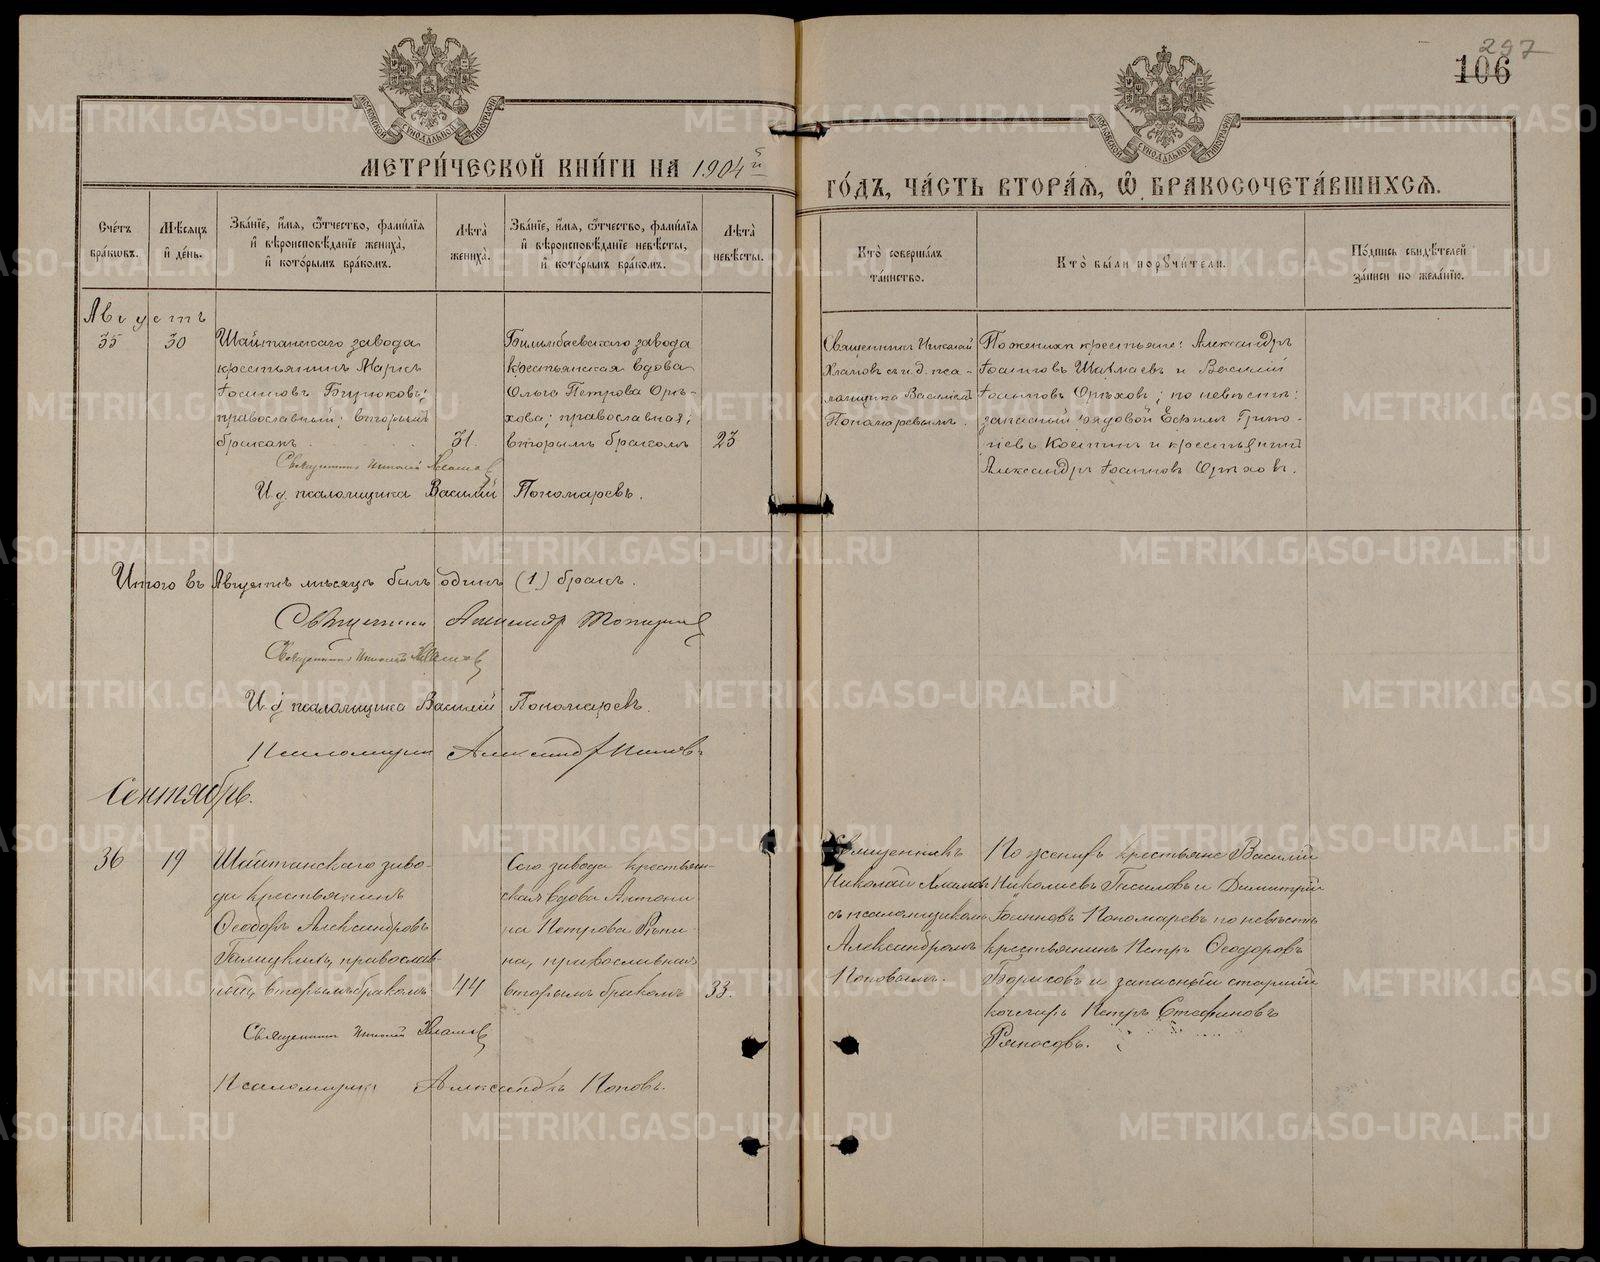 297
106
МЕТРИ́ЧЕСКОЙ КНИ́ГИ НА 1904 й
ГО́ДЪ, ЧА́СТЬ ВТОРА́Я, Ѡ БРАКОСОЧЕТА́ВШИХСЯ.
Сче́тъ бра́ковъ.
Мѣ́сяцъ и де́нь.
Зва́нїе, и́мя, ѻ́тчество, фами́лїя и вѣроисповѣ́данїе жениха̀, и кото́рымъ бра́комъ.
Лѣта̀ жениха̀.
Зва́нїе, и́мя, ѻ́тчество, фами́лїя и вѣроисповѣ́данїе невѣ́сты, и кото́рымъ бра́комъ.
Лѣта̀ невѣ́сты.
Кто̀ соверша́лъ та́инство.
Кто̀ бы́ли порꙋчи́тели.
По́дпись свидѣ́телей за́писи по жела́нїю.
Августъ
35
30
Шайтанскаго завода
крестьянинъ Маркъ
Іоанновъ Бирюковъ;
православный; вторымъ
бракомъ
31.
Билимбаевскаго завода
крестьянская вдова
Ольга Петрова Орѣ-
хова; православная;
вторымъ бракомъ
23
Священникъ Николай
Хламовъ съ и. д. пса-
ломщика Василіемъ
Пономаревымъ.
По женихѣ крестьяне: Александръ
Іоанновъ Шахмаевъ и Василій
Іоанновъ Орѣховъ; по невѣстѣ:
запасный рядовой Ефимъ Григо-
рьевъ Костинъ и крестьянинъ
Александръ Іоанновъ Орѣховъ.
Священникъ Николай Хламовъ
И д. псаломщика Василій Пономаревъ.
Итого въ Августѣ мѣсяцѣ былъ одинъ (1) бракъ.
Священникъ Александръ
Священникъ Николай Хламовъ
И д. псаломщика Василій Пономаревъ.
Псаломщикъ Александръ Поповъ
Сентябрь.
36
19
Шайтанскаго заво-
да крестьянинъ
Ѳеодоръ Александровъ
Галицкихъ, православ-
ный, вторымъ бракомъ
44
Сего завода крестьян-
ская вдова Антони-
на Петрова Рѣпи-
на, православная
вторымъ бракомъ
33.
Священникъ
Николай Хламовъ
съ псаломщикомъ
Александромъ
Поповымъ.
По женихѣ крестьяне Василій
Николаевъ Гасиловъ и Димитрій
Іоанновъ Пономаревъ по невѣстѣ
крестьянинъ Петръ Ѳеодоровъ
Борисовъ и запасный старшій
кочегаръ Петръ Стефановъ
Ряпосовъ.
Священникъ Николай Хламовъ
Псаломщикъ Александръ Поповъ.
METRIKI.GASO-URAL.RU